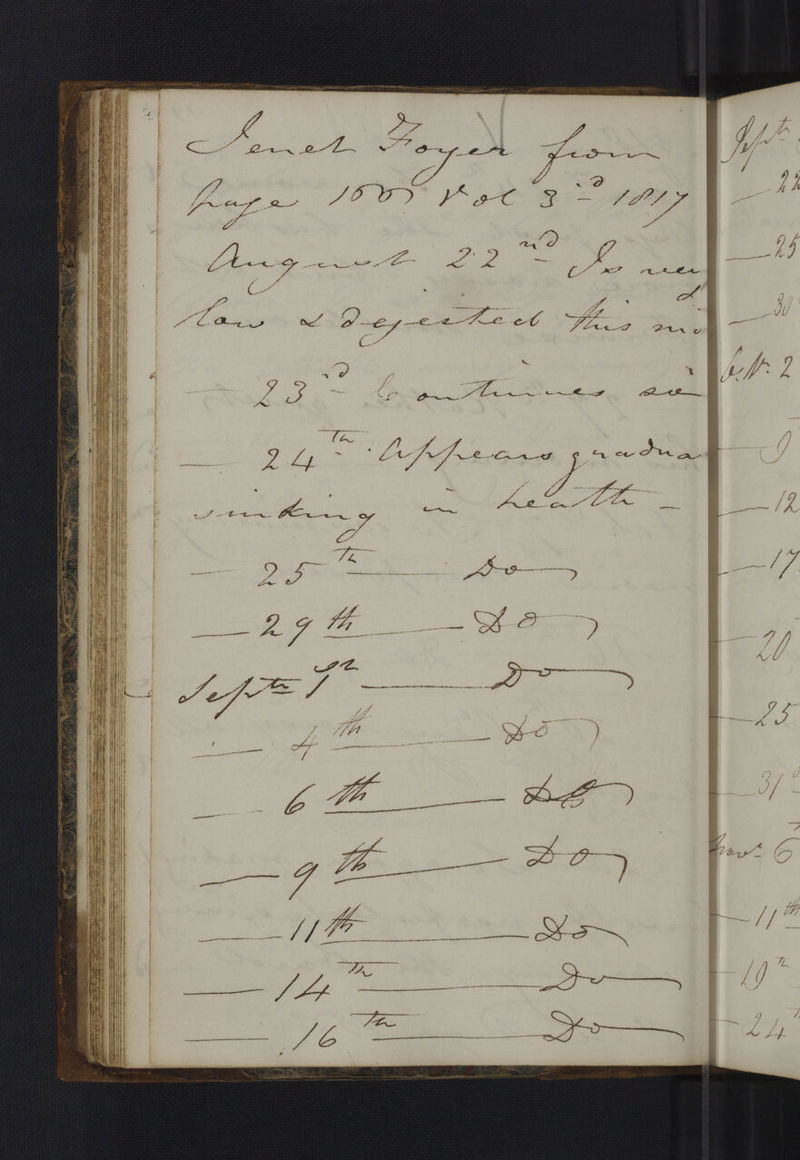 Jenet Foyer from
page 166 Vol 3rd 1817
August 22nd Is very
low & dejected this
— 23rd Continues
— 24th Appears
sinking in health -
— 25th — Do
— 29th — Do
Septr 1st — Do
— 4th — Do
— 6th — Do
— 9th — Do
— 11th — Do
— 14th — Do
— 16th — Do
Septr
— 22
— 25
— 30
2
— 9
— 12
— 17
— 20
— 25
— 31
Novr 6
— 11th
— 19th
— 24